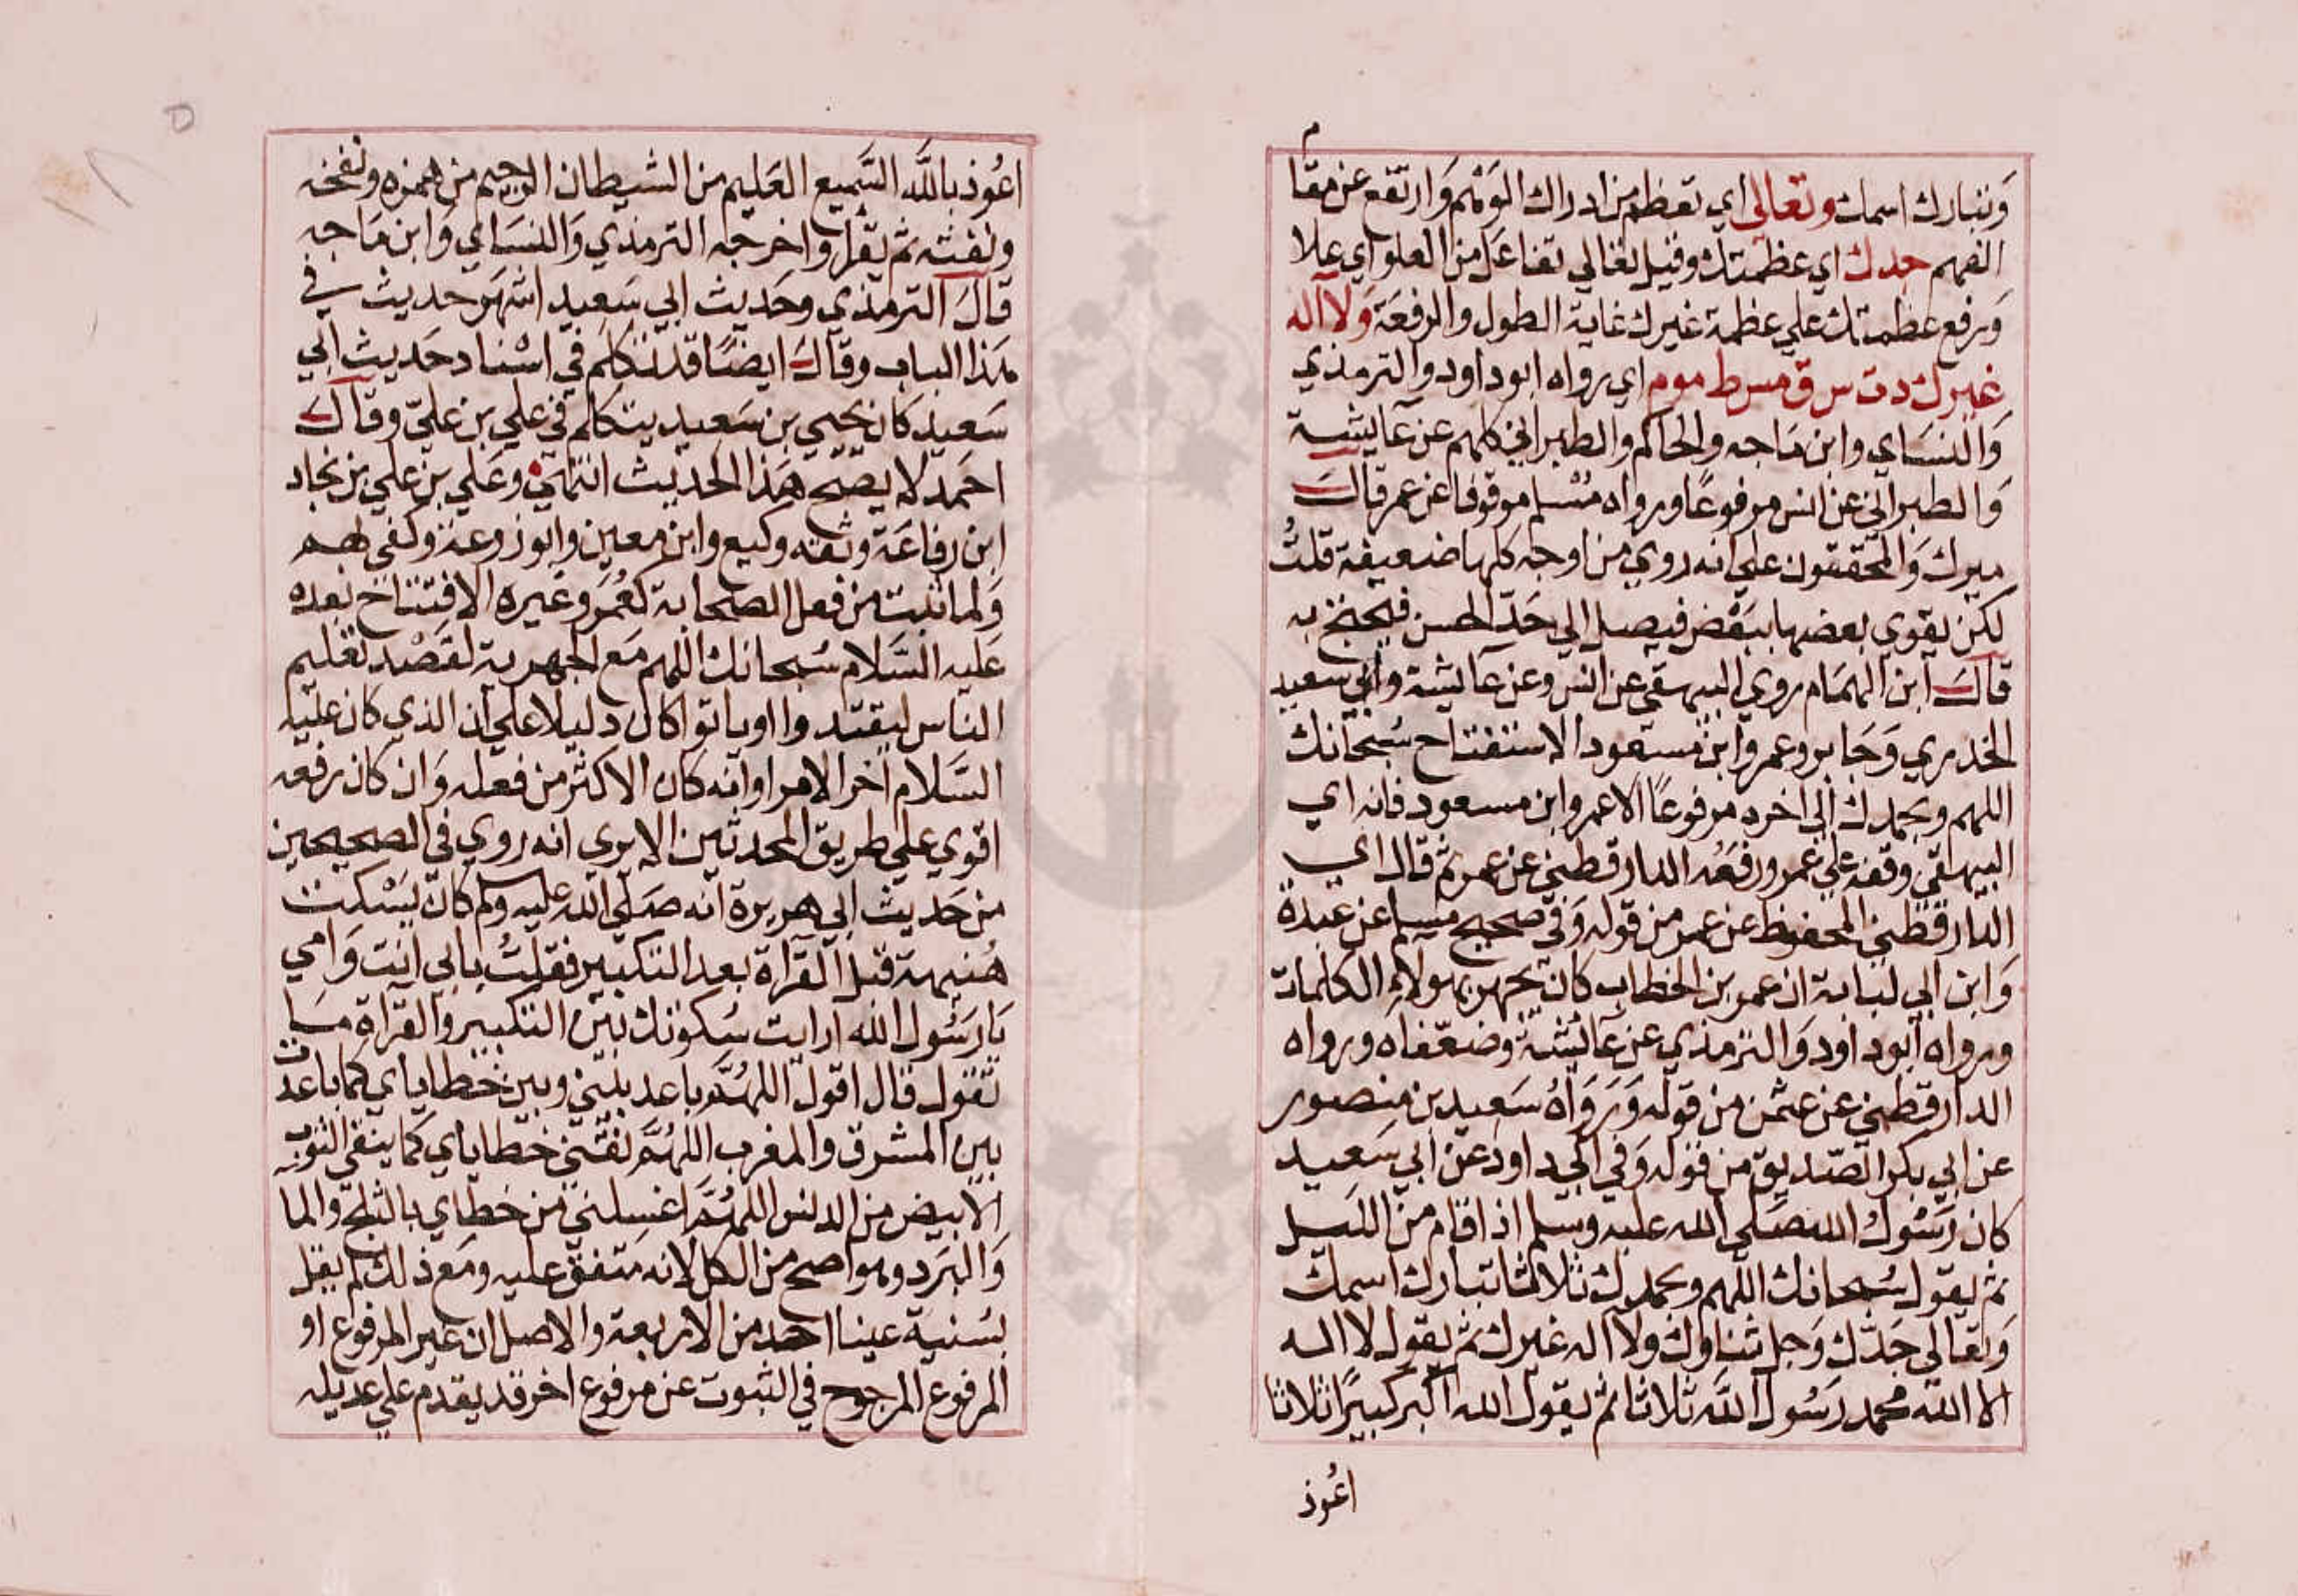 وتبارك اسمك وتعالى اي تعظم من ادراك الوهم وارتفع عن مقام
الفهم جدك اي عظمتك وقيل تعالي تفاعل من العلو اي علا
ورفع عظمتك علي عظمة غيرك غاية الطول والرفعة ولا اله
غيرك دت س ق مس ط مو م اي رواه ابوداود والترمذي
والنساي وابن ماجه والحاكم والطبراني كلهم عن عايشة
والطبراني عن انس مرفوعا ورواه مسلم موقوفا عن عمر قال
ميرك والمحققون علي انه روي من اوجه كلها ضعيفة قلت
لكن يقوي بعضها ببعض فيصل الي حد الحسن فيحتج به
قال ابن الهمام روي البيهقي عن انس وعن عايشة وابي سعيد
الخدري وجابر وعمر وابن مسعود الاستفتاح سبحانك
اللهم وبحمدك الي اخره مرفوعا الا عمر وابن مسعود فانه اي
البيهقي وقفه علي عمر ورفعه الدارقطني عن عمر ثم قال اي
الدارقطني المحفوظ عن عمر من قوله وفي صحيح مسلم عن عبدة
وابن ابي لبابة ان عمر بن الخطاب كان يجهر بهولاء الكلمات
ورواه ابوداود والترمذي عن عايشة وضعفاه ورواه
الدارقطني عن عثمن من قوله ورواه سعيد بن منصور
عن ابي بكر الصديق من قوله وفي ابي داود عن ابي سعيد
كان رسول الله صلي الله عليه وسلم اذا قام من الليل
ثم يقول سبحانك اللهم وبحمدك ثلاثا تبارك اسمك
وتعالى جدك وجل ثناوك ولا اله غيرك ثم يقول لا اله
الا الله محمد رسول الله ثلاثا ثم يقول الله اكبر كبيرا ثلاثا
اعوذ
اعوذ بالله السميع العليم من الشيطان الرجيم من همزه ونفخه
ونفثه ثم يقرا واخرجه الترمذي والنسائي وابن ماجه
قال الترمذي وحديث ابي سعيد اشهر حديث في
هذا الباب وقال ايضا قد تكلم في اسناد حديث ابي
سعيد كان يحيي بن سعيد يتكلم في علي بن علي وقال
احمد لا يصح هذا الحديث انتهي وعلي بن علي بن نجاد
ابن رفاعة وثقه وكيع وابن معين وابوزرعة وكفي بهم
ولما ثبت من فعل الصحابة كعمر وغيره الافتتاح بعده
عليه السلام سبحانك اللهم مع الجهر به لقصد تعليم
الناس ليقتدوا او ياتوا كان دليلا علي ان الذي كان عليه
السلام اخر الامر او انه كان الاكثر من فعله وان كان رفعه
اقوي علي طريق المحدثين الا يري انه روي في الصحيحين
من حديث ابي هريرة انه صلي الله عليه وسلم كان يسكت
هنيهة قبل القراة بعد التكبير فقلت بابي انت وامي
يا رسول الله ارايت سكوتك بين التكبير والقراة ما
تقول قال اقول اللهم باعد بيني وبين خطاياي كما باعدت
بين المشرق والمغرب اللهم نقني خطاياي كما ينقي الثوب
الابيض من الدنس اللهم اغسلني من خطاي بالثلج والما
والبرد وهو اصح من الكل لانه متفق عليه ومع ذلك لم يقل
بسنية عينا احد من الاربعة والاصل ان غير المرفوع او
المرفوع المرجوح في الثبوت عن مرفوع اخر قد يقدم علي عديله